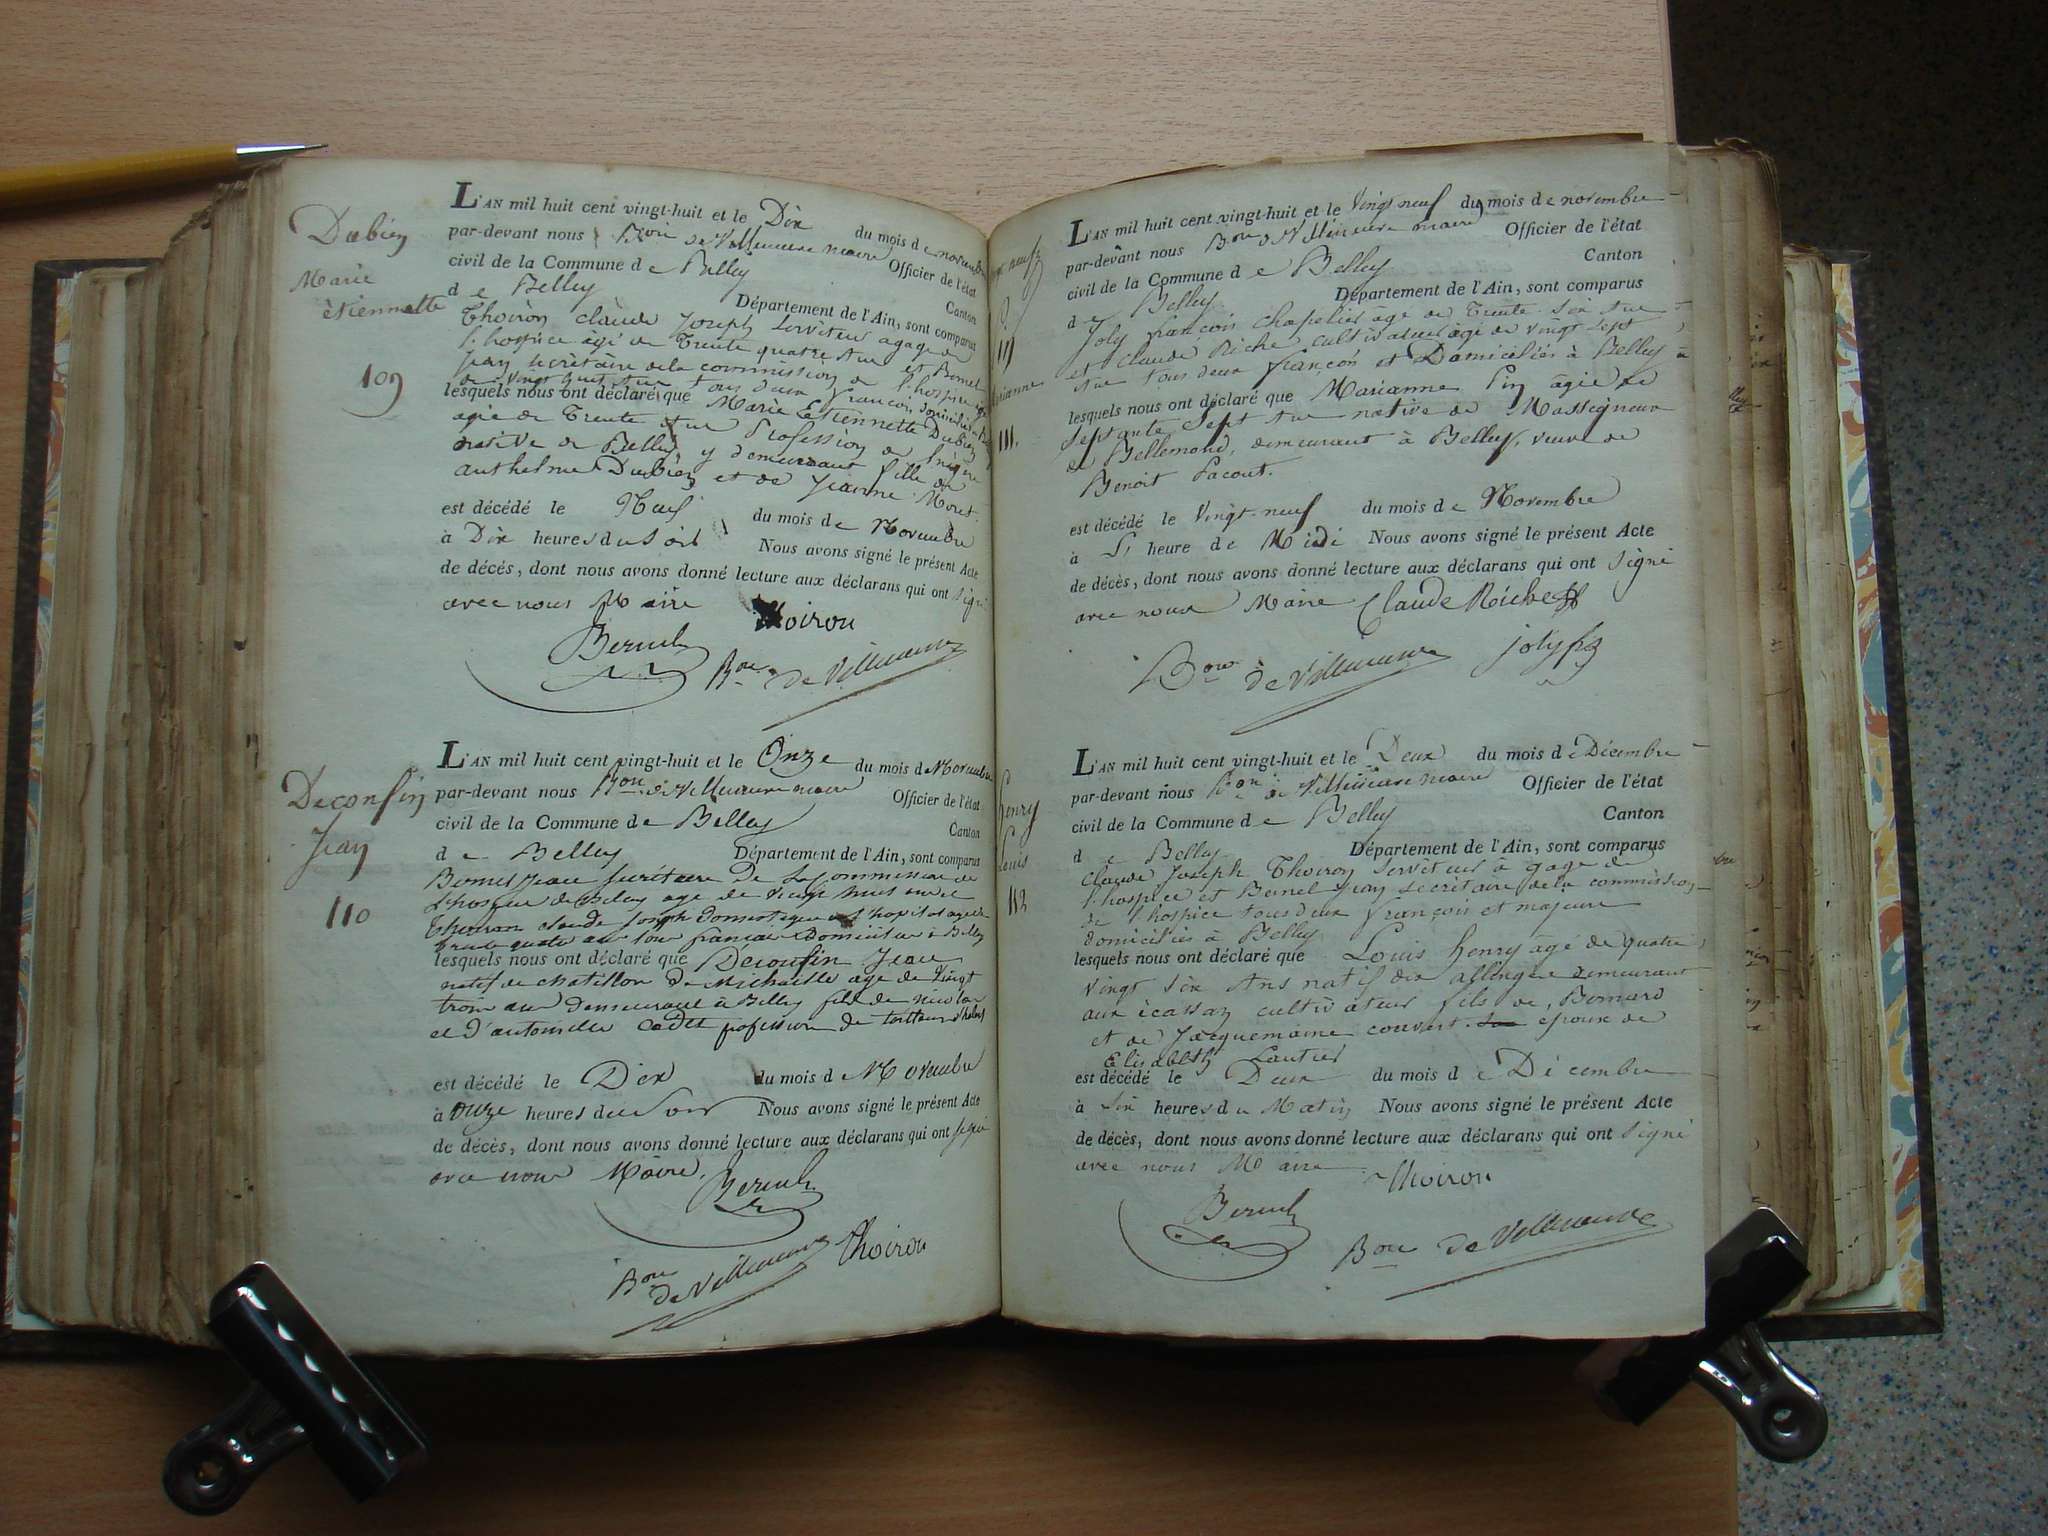 Dubien
Marie
étiennette
109
L'AN mil huit cent vingt-huit et le Dix du mois de novembre
par-devant nous Bon de Villeneuve maire Officier de l'état
civil de la Commune de Belley Canton
de Belley Département de l'Ain, sont comparus
Thoiron claude Joseph Serviteur a gage de
l'hospice âgé de Trente quatre Ans et
Jean secrètaire de la commission de l'hospice âgé
de vingt huit Ans tous deux francois domiciliés
lesquels nous ont déclaré que Marie Etiennette Dubien
agée de Trente Ans Profession de
native de Belley y demeurant fille de
anthelme Dubien et de Jeanne Moret
est décédé le Neuf du mois de Novembre
à Dix heures du Soir Nous avons signé le présent Acte
de décés, dont nous avons donné lecture aux déclarans qui ont signé
avec nous Maire Thoiron
Bon de Villeneuve
Deconfin
Jean
110
L'AN mil huit cent vingt-huit et le Onze du mois de Novembre
par-devant nous Bon de Villeneuve maire Officier de l'état
civil de la Commune de Belley Canton
de Belley Département de l'Ain, sont comparus
Jean secrétaire de la Commission de
L'hospice de Belley age de vingt huit ans et
Thoiron claude joseph Domestique a l'hopital age de
trente quatre ans tous francais Domicilies à Belley
lesquels nous ont déclaré que Deconfin Jean
natif de chatillon de Michaille age de vingt
trois ans demeurant à Belley fils de nicolas
et d'antoinette Cadet profession de
est décédé le Dix du mois de Novembre
à onze heures du Soir Nous avons signé le présent Acte
de décés, dont nous avons donné lecture aux déclarans qui ont signé
avec nous Maire.
Bon de Villeneuve Thoiron
111.
L'AN mil huit cent vingt-huit et le Vingt neuf du mois de novembre
par-devant nous Bon de Villeneuve maire Officier de l'état
civil de la Commune de Belley Canton
de Belley Département de l'Ain, sont comparus
Joly françois chapelier âgé de Trente Six Ans
et Claude Riche cultivateur âgé de vingt Sept
Ans tous deux françois et Domiciliés à Belley
lesquels nous ont déclaré que Marianne Pin âgée de
Septante Sept Ans native de Massigneux
de Bellemond, demeurant à Belley, veuve de
Benoit Pacout.
est décédé le Vingt-neuf du mois de Novembre
à heure de Midi Nous avons signé le présent Acte
de décés, dont nous avons donné lecture aux déclarans qui ont signé
avec nous Maire Claude Riche
Bon de Villeneuve joly
henry
Louis
112
L'AN mil huit cent vingt-huit et le Deux du mois de Décembre
par-devant nous Bon de Villeneuve maire Officier de l'état
civil de la Commune de Belley Canton
de Belley Département de l'Ain, sont comparus
Claude Joseph Thoiron Serviteur à gage de
l'hospice et Jean secrètaire de la commission
de l'hospice tous deux françois et majeurs
domiciliés à Belley
lesquels nous ont déclaré que Louis henry âgé de quatre
vingt Six Ans natif demeurant
aux écassaz cultivateur fils de Bernard
et de Jacquemaine couvert epoux de
Elisabeth Lautier
est décédé le Deux du mois de Décembre
à Six heures du Matin Nous avons signé le présent Acte
de décés, dont nous avons donné lecture aux déclarans qui ont signé
avec nous Maire Thoiron
Bon de Villeneuve